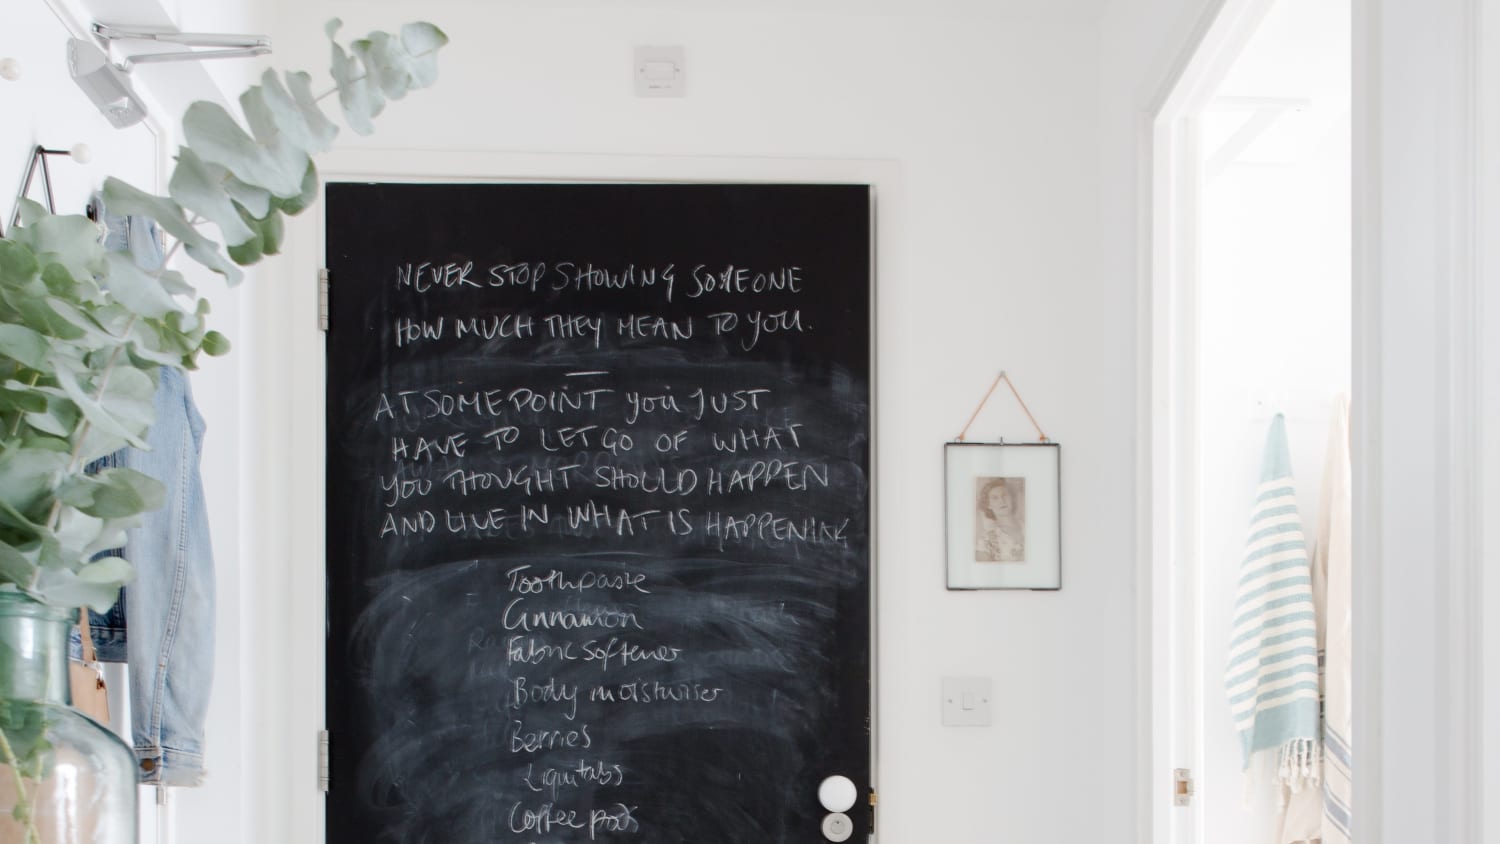 NEVER STOP SHOWING SOMEONE
HOW MUCH THEY MEAN TO YOU.
—
AT SOME POINT YOU JUST
HAVE TO LET GO OF WHAT
YOU THOUGHT SHOULD HAPPEN
AND LIVE IN WHAT IS HAPPENING
Toothpaste
Cinnamon
Fabric softener
Body moisturiser
Berries
Liquitabs
Coffee pods